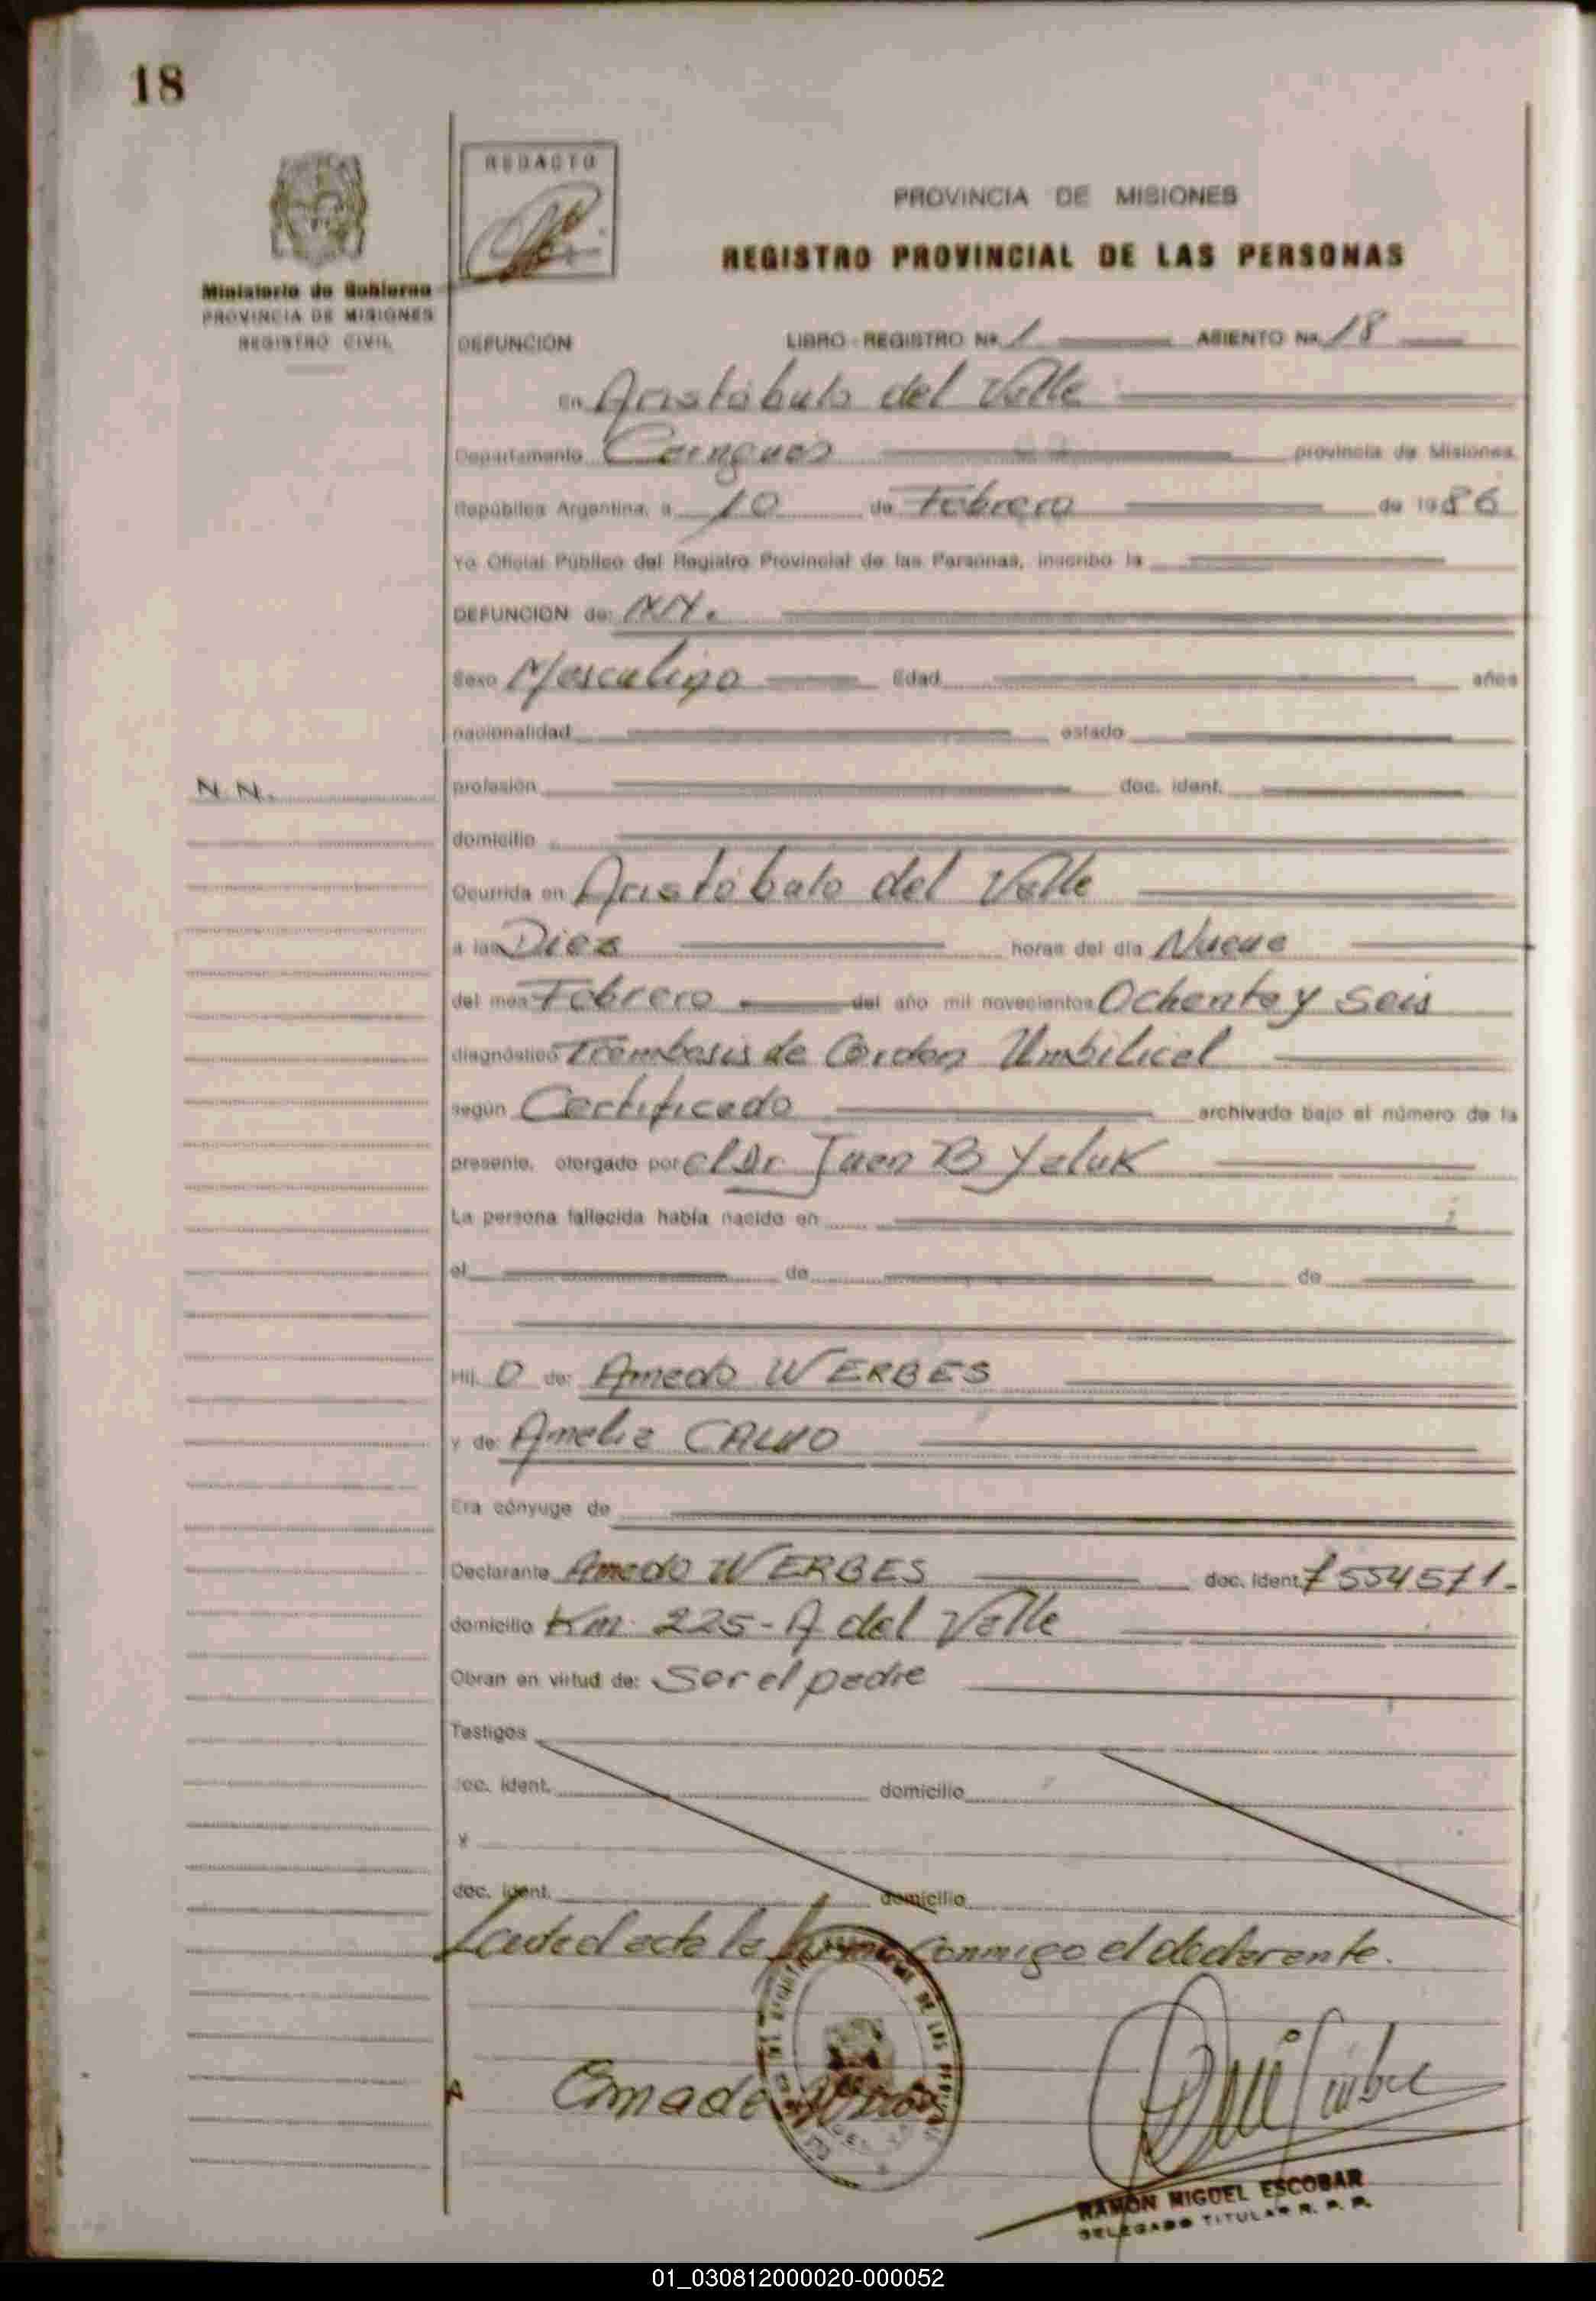 18
REDACTO
PROVINCIA DE MISIONES
REGISTRO PROVINCIAL DE LAS PERSONAS
Ministerio de Gobierno
PROVINCIA DE MISIONES
REGISTRO CIVIL
DEFUNCION LIBRO - REGISTRO Nº 1 ASIENTO Nº 18
En Aristóbulo del Valle
Departamento Cainguas provincia de Misiones,
República Argentina, a 10 de Febrero de 1986
Yo Oficial Público del Registro Provincial de las Personas, inscribo la
DEFUNCION de: NN.
Sexo Masculino Edad años
nacionalidad estado
N.N.
profesión doc. ident.
domicilio
Ocurrida en Aristóbulo del Valle
a las Diez horas del día Nueve
del mes Febrero del año mil novecientos Ochenta y Seis
diagnóstico Trombosis de Cordon Umbilical
según Certificado archivado bajo el número de la
presente, otorgado por el Dr Juan B Yaluk
La persona fallecida había nacido en
el de de
Hij O de: Amado WERBES
y de: Amelia CALVO
Era cónyuge de
Declarante Amado WERBES doc. ident. 7554571.-
domicilio Km. 225 - A del Valle
Obran en virtud de: Ser el padre
Testigos
doc. ident. domicilio
y
doc. ident. domicilio
Leída el acta la firma conmigo el declarante.
Amado
RAMÓN MIGUEL ESCOBAR
DELEGADO TITULAR R. P. P.
01_030812000020-000052